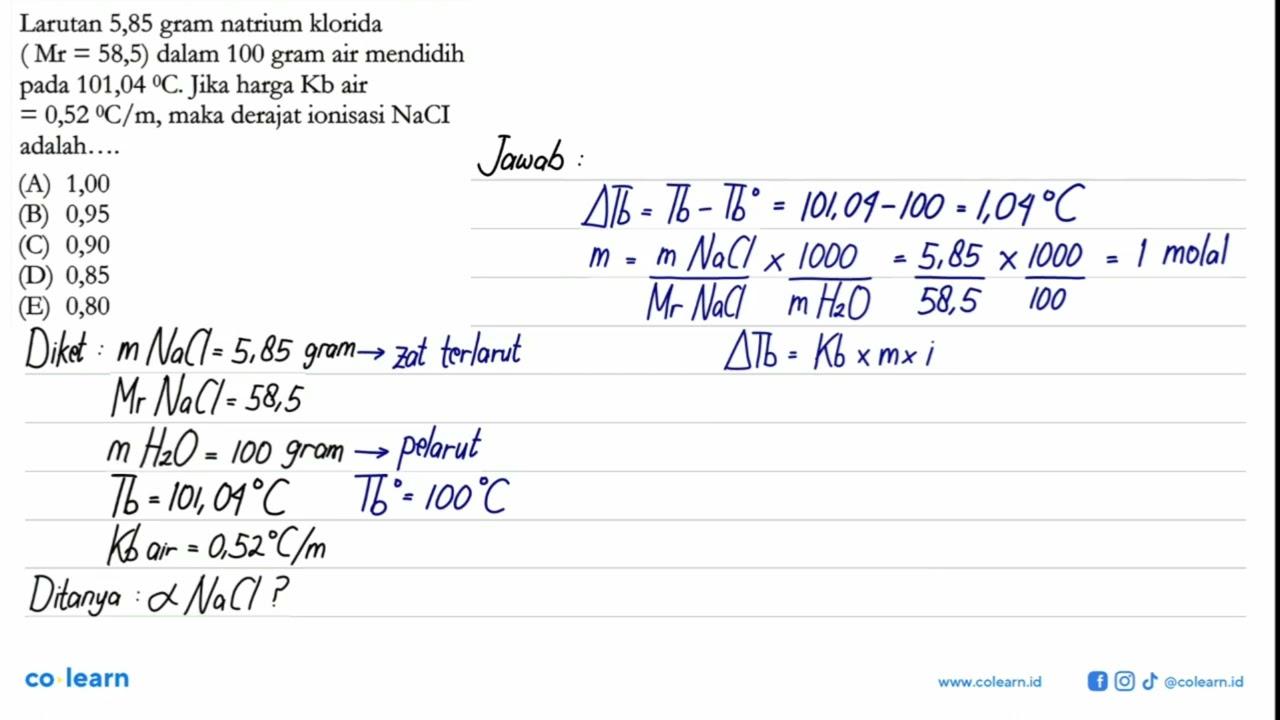 Larutan 5,85 gram natrium klorida
( Mr = 58,5) dalam 100 gram air mendidih
pada 101,04 ⁰C. Jika harga Kb air
= 0,52 ⁰C/m, maka derajat ionisasi NaCI
adalah….
(A) 1,00
(B) 0,95
(C) 0,90
(D) 0,85
(E) 0,80
Diket : m NaCl = 5,85 gram → zat terlarut
Mr NaCl = 58,5
m H₂O = 100 gram → pelarut
Tb = 101,04°C Tb° = 100°C
Kb air = 0,52°C/m
Ditanya : α NaCl ?
Jawab :
ΔTb = Tb - Tb° = 101,04 - 100 = 1,04°C
m = m NaCl / Mr NaCl × 1000 / m H₂O = 5,85 / 58,5 × 1000 / 100 = 1 molal
ΔTb = Kb × m × i
co learn
www.colearn.id
@colearn.id